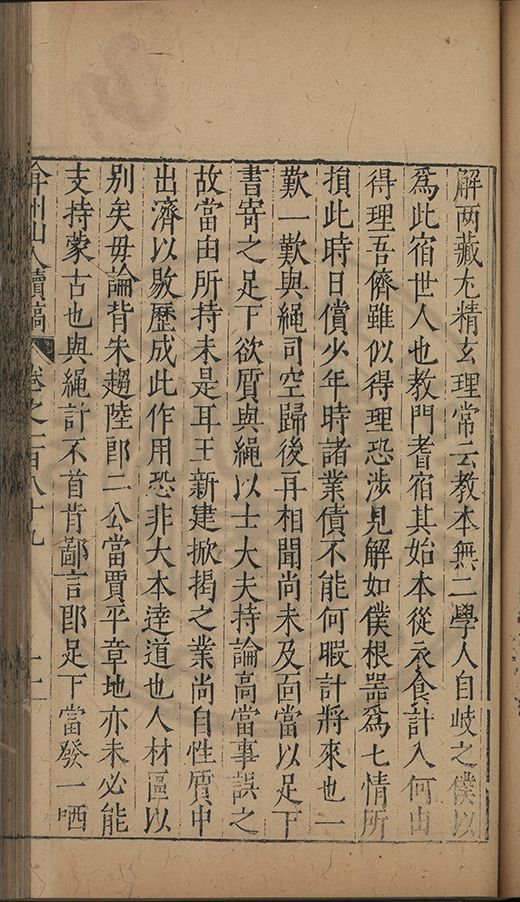 解兩藏尤精玄理常云教本無二學人自岐之僕以
為此宿世人也教門耆宿其始本從衣食計入何由
得理吾儕雖似得理恐涉見解如僕根器為七情所
損此時日償少年時諸業債不能何暇計將來也一
歎一歎與繩司空歸後再相聞尚未及面當以足下
書寄之足下欲質與繩以士大夫持論高當事誤之
故當由所持未是耳王新建掀揭之業尚自性質中
出濟以敭歷成此作用恐非大本達道也人材區以
別矣毋論背朱趨陸即二公當賈平章地亦未必能
支持蒙古也與繩計不首肯鄙言即足下當發一哂
弇州山人續稿 卷之一百八十九 十二